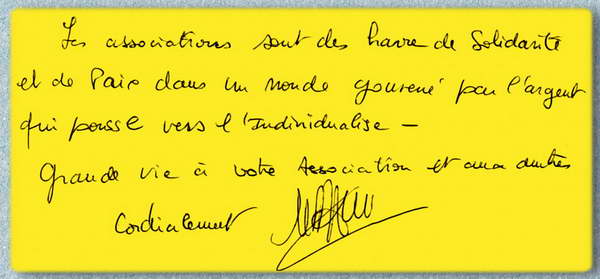 Les associations sont des havre de Solidarité
et de Paix dans un monde gouverné par l'argent
qui pousse vers l'Individualise –
Grande vie à votre Association et aux autres
Cordialement